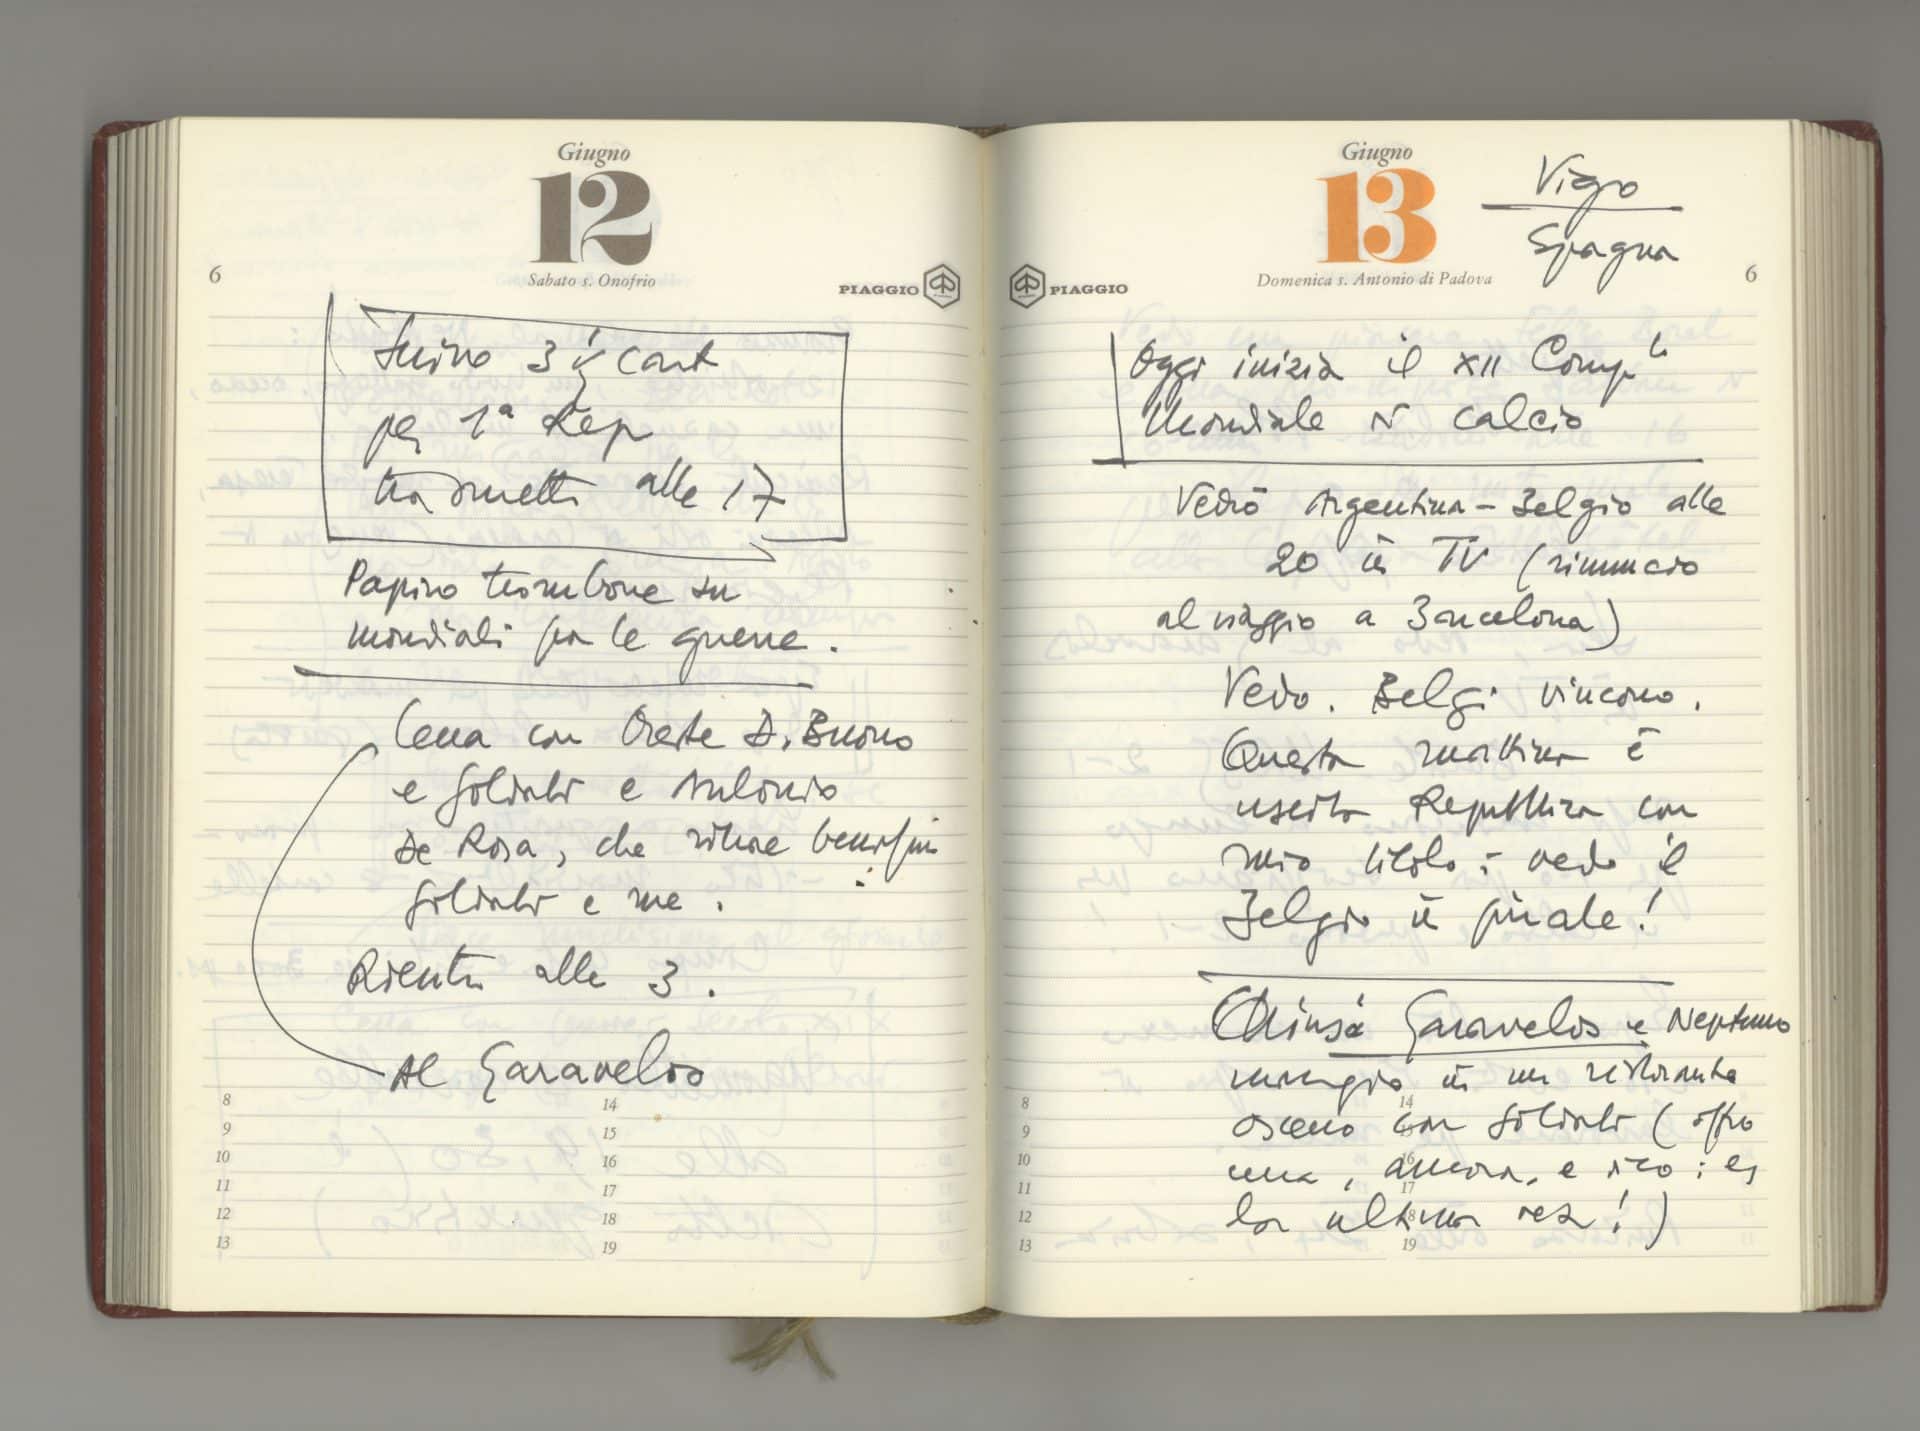 Giugno
12
Sabato s. Onofrio
6
PIAGGIO
Scrivo 3 cart
per 1ª Rep
trasmetto alle 17
Papiro trombone su
mondiali fra le guerre.
Cena con Oreste D. Buono
e Soldati e Antonio
De Rosa, che
Soldati e me.
Rientro alle 3.
Al Garavelos
8
9
10
11
12
13
14
15
16
17
18
19
Giugno
13
Domenica s. Antonio di Padova
6
PIAGGIO
Vigo
Spagna
Oggi inizia il XII Camp
Mondiale di calcio
Vedrò Argentina - Belgio alle
20 in TV (rinuncio
al viaggio a Barcelona)
Vedo. Belgi vincono.
Questa mattina è
uscita Repubblica con
mio titolo: vedo il
Belgio in finale!
Chiusi Garavelos e Neptuno
mangio in un ristorante
osceno con Soldati (offro
una, ancora, e dico: es
la ultima vez!)
8
9
10
11
12
13
14
16
17
18
19